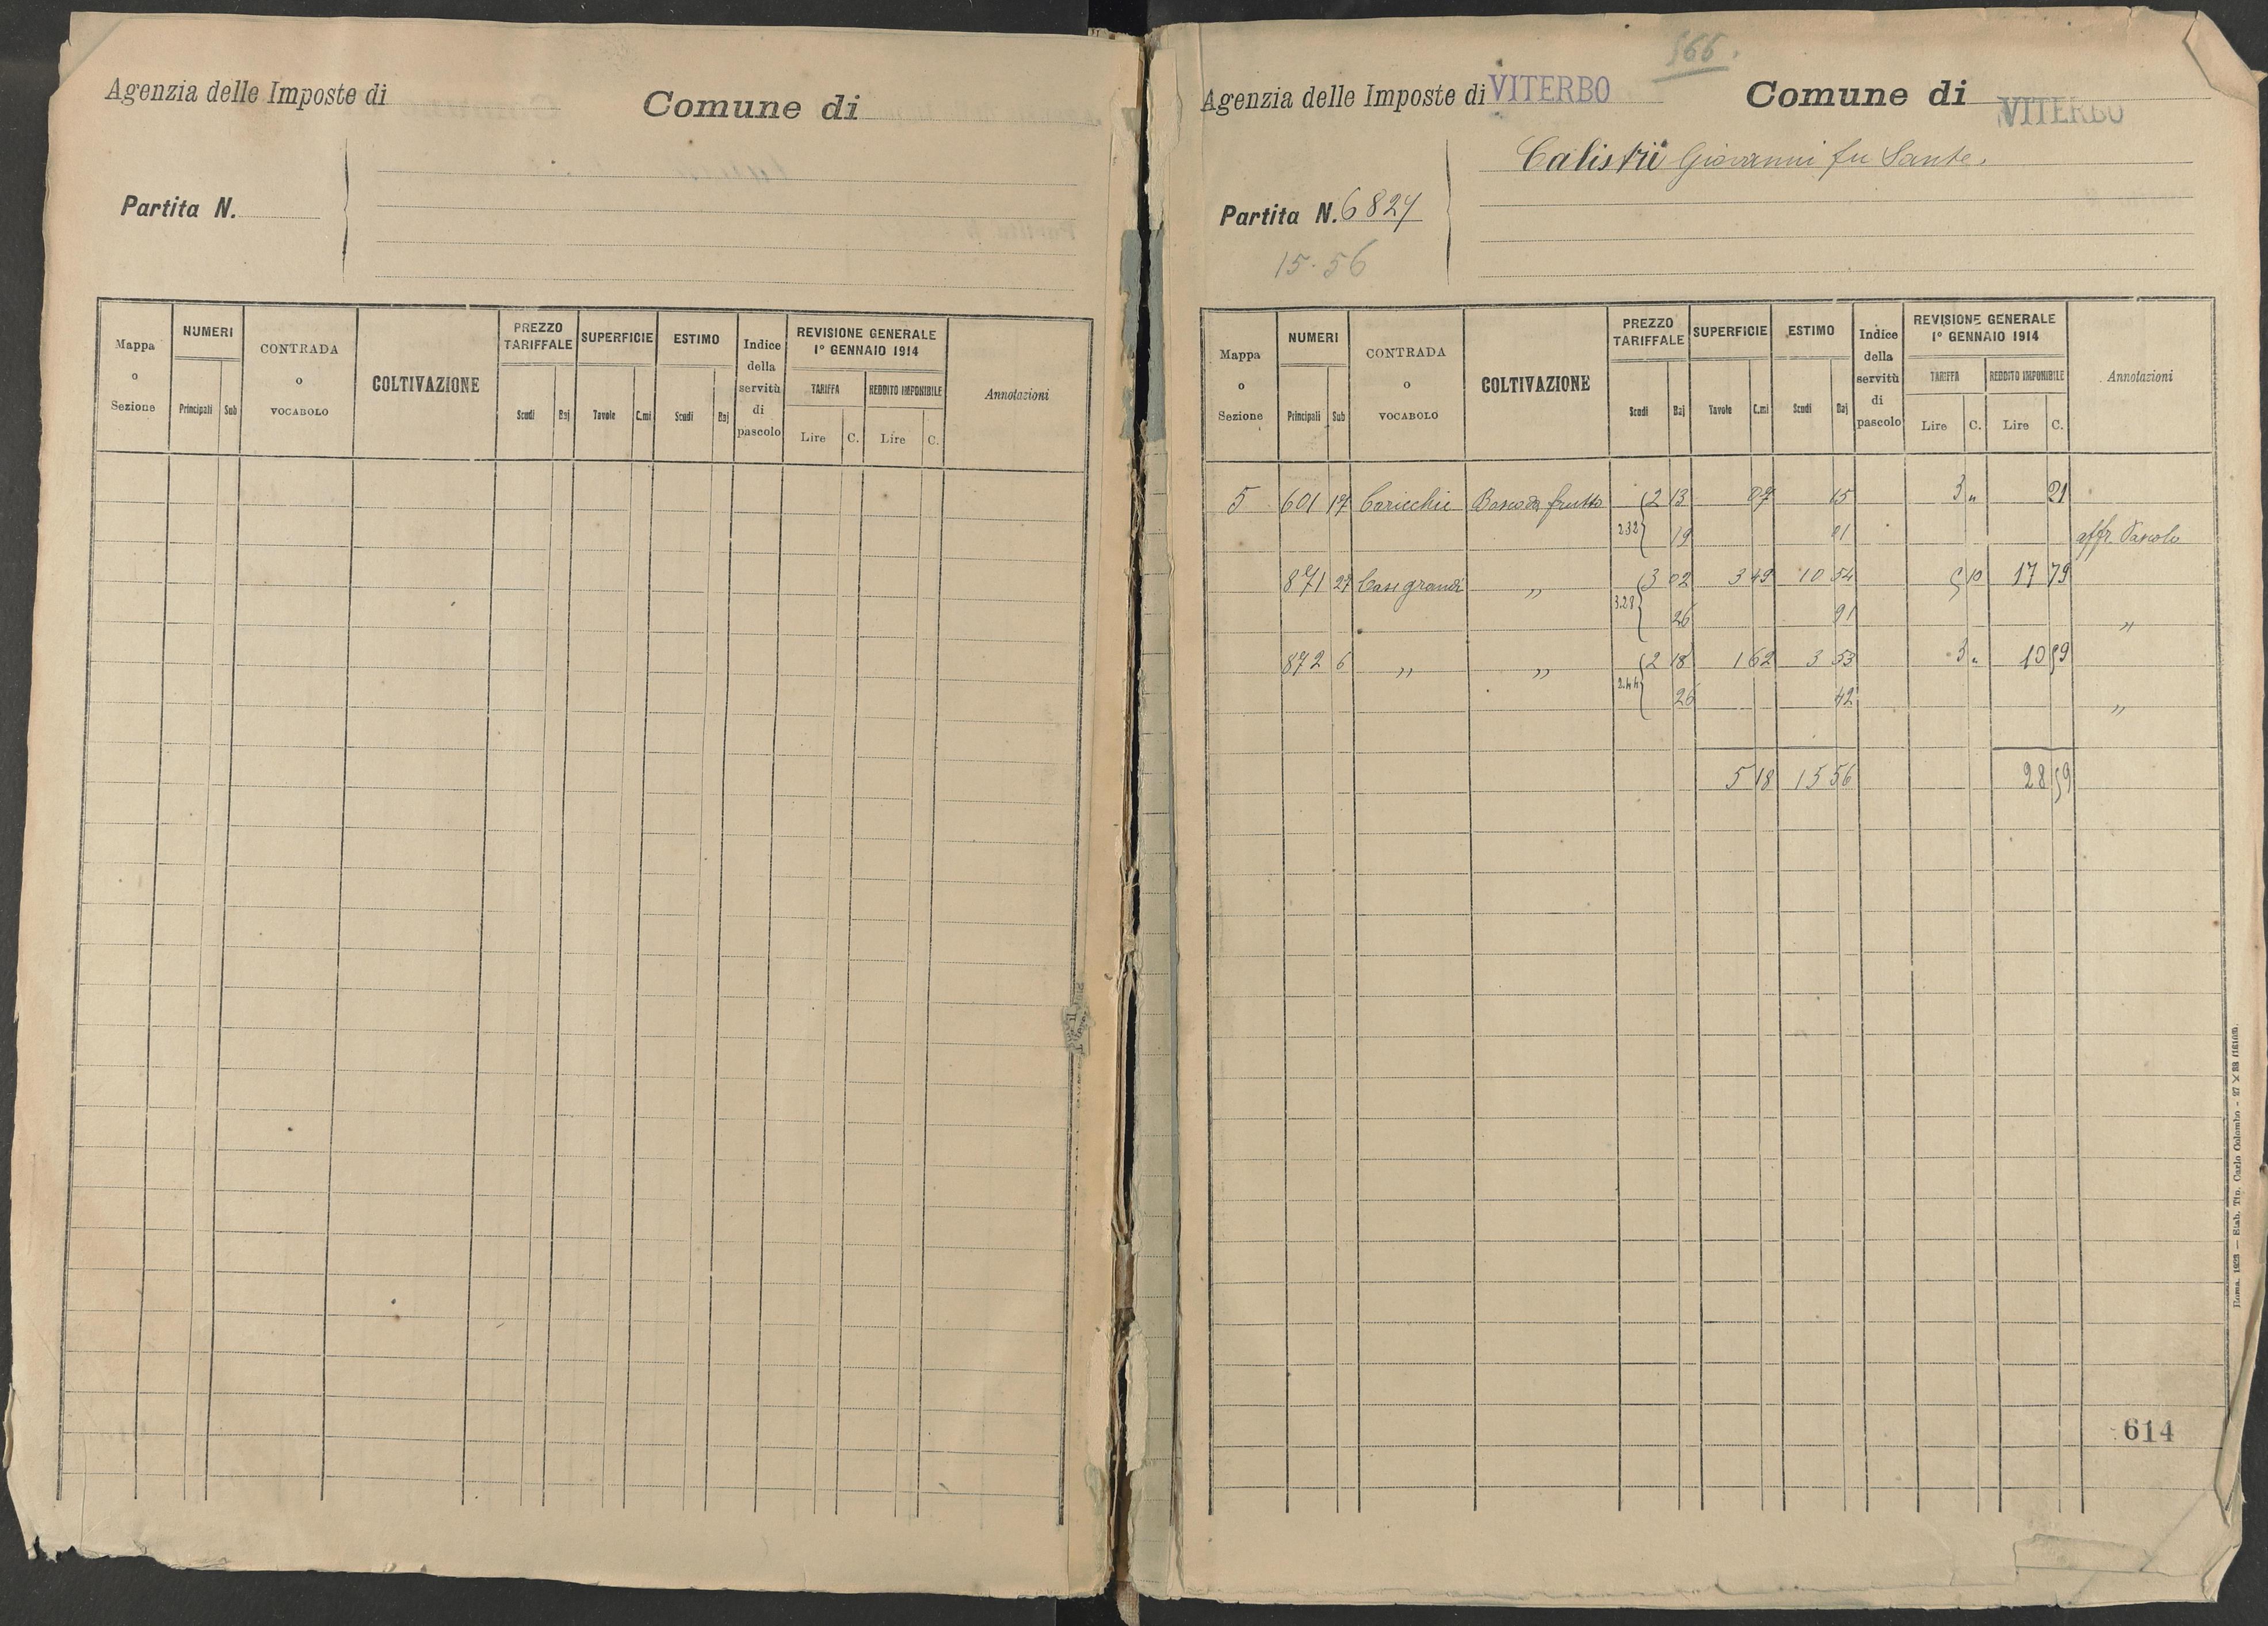 Agenzia delle Imposte di
Comune di
Partita N.
Mappa o Sezione
NUMERI
Principali Sub
CONTRADA o VOCABOLO
COLTIVAZIONE
PREZZO TARIFFALE
Scudi Baj
SUPERFICIE
Tavole C.mi
ESTIMO
Scudi Baj
Indice della servitù di pascolo
REVISIONE GENERALE
1º GENNAIO 1914
TARIFFA REDDITO IMPONIBILE
Lire C. Lire C.
Annotazioni
566.
Agenzia delle Imposte di VITERBO
Comune di VITERBO
Calistri Giovanni fu Sante.
Partita N. 6827
15.56
Mappa o Sezione
NUMERI
Principali Sub
CONTRADA o VOCABOLO
COLTIVAZIONE
PREZZO TARIFFALE
Scudi Baj
SUPERFICIE
Tavole C.mi
ESTIMO
Scudi Baj
Indice della servitù di pascolo
REVISIONE GENERALE
1º GENNAIO 1914
TARIFFA REDDITO IMPONIBILE
Lire C. Lire C.
Annotazioni
5 601 17 Coricchie Bosco da frutto 2 13 07 15 3 " 21
2.32 19 01 affr. Pascolo
871 27 Casi grandi " 3 02 3 49 10 54 5 10 17 79
3.28 26 91 "
872 6 " " 2 18 1 62 3 53 3 " 10 59
2.44 26 42 "
5 18 15 56 28 59
614
Roma, 1923 — Stab. Tip. Carlo Colombo